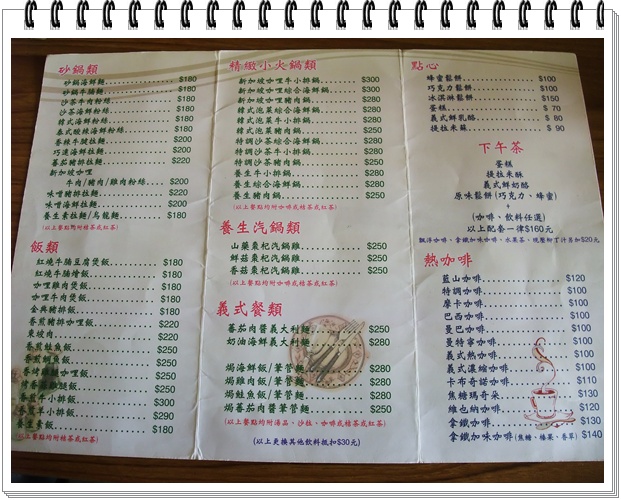 砂鍋類
砂鍋海鮮麵 $180
砂鍋牛腩麵 $180
沙茶牛肉粉絲 $180
沙茶海鮮粉絲 $180
韓式海鮮粉絲 $180
泰式酸辣海鮮粉絲 $180
香辣牛腱拉麵 $200
巧達海鮮拉麵 $200
蕃茄豬排拉麵 $220
新加坡咖哩
牛肉/豬肉/雞肉粉絲 $200
味噌豬排拉麵 $200
味噌海鮮拉麵 $200
養生素拉麵/烏龍麵 $180
(以上餐點均附桔茶或紅茶)
飯類
紅燒牛腩豆腐煲飯 $180
紅燒牛腩燴飯 $180
咖哩雞肉煲飯 $180
咖哩牛肉煲飯 $180
金典豬排飯 $180
香煎豬排咖哩飯 $220
東坡肉 $220
香煎鮭魚飯 $250
香煎鯛魚飯 $250
香烤雞腿咖哩飯 $250
烤香菇雞腿飯 $250
香煎牛小排飯 $300
香煎羊小排飯 $290
養生素飯 $180
(以上餐點均附桔茶或紅茶)
精緻小火鍋類
新加坡咖哩牛小排鍋 $300
新加坡咖哩綜合海鮮鍋 $300
新加坡咖哩豬肉鍋 $280
韓式泡菜綜合海鮮鍋 $280
韓式泡菜牛小排鍋 $280
韓式泡菜豬肉鍋 $250
特調沙茶綜合海鮮鍋 $280
特調沙茶牛小排鍋 $280
特調沙茶豬肉鍋 $250
養生牛小排鍋 $280
養生綜合海鮮鍋 $280
養生豬肉鍋 $250
(以上餐點均附咖啡或桔茶或紅茶)
養生汽鍋類
山藥棗杞汽鍋雞 $250
鮮菇棗杞汽鍋雞 $250
香菇棗杞汽鍋雞 $250
(以上餐點均附咖啡或桔茶或紅茶)
義式餐類
蕃茄肉醬義大利麵 $250
奶油海鮮義大利麵 $280
焗海鮮飯/筆管麵 $280
焗雞肉飯/筆管麵 $280
焗鮭魚飯/筆管麵 $280
焗蕃茄肉醬筆管麵 $250
(以上餐點均附湯品、沙拉、咖啡或桔茶或紅茶)
(以上更換其他飲料抵扣$30元)
點心
蜂蜜鬆餅 $100
巧克力鬆餅 $100
冰淇淋鬆餅 $150
蛋糕 $ 70
義式鮮乳酪 $ 80
提拉米蘇 $ 90
下午茶
蛋糕
提拉米酥
義式鮮奶酪
原味鬆餅(巧克力、蜂蜜)
+
(咖啡、飲料任選)
以上配套一律$160元
飄浮咖啡、拿鐵加味咖啡、水果茶、現壓柳丁汁另加$20元
熱咖啡
藍山咖啡 $120
特調咖啡 $100
摩卡咖啡 $100
巴西咖啡 $100
曼巴咖啡 $100
曼特寧咖啡 $100
義式熱咖啡 $100
義式濃縮咖啡 $100
卡布奇諾咖啡 $110
焦糖瑪奇朵 $130
維也納咖啡 $120
拿鐵咖啡 $130
拿鐵加味咖啡(焦糖、榛果、香草) $140